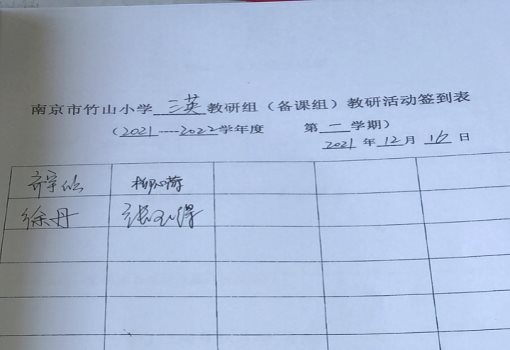 南京市竹山小学 三英 教研组（备课组）教研活动签到表
（2021----2022学年度 第一学期）
2021年12月16日
徐丹